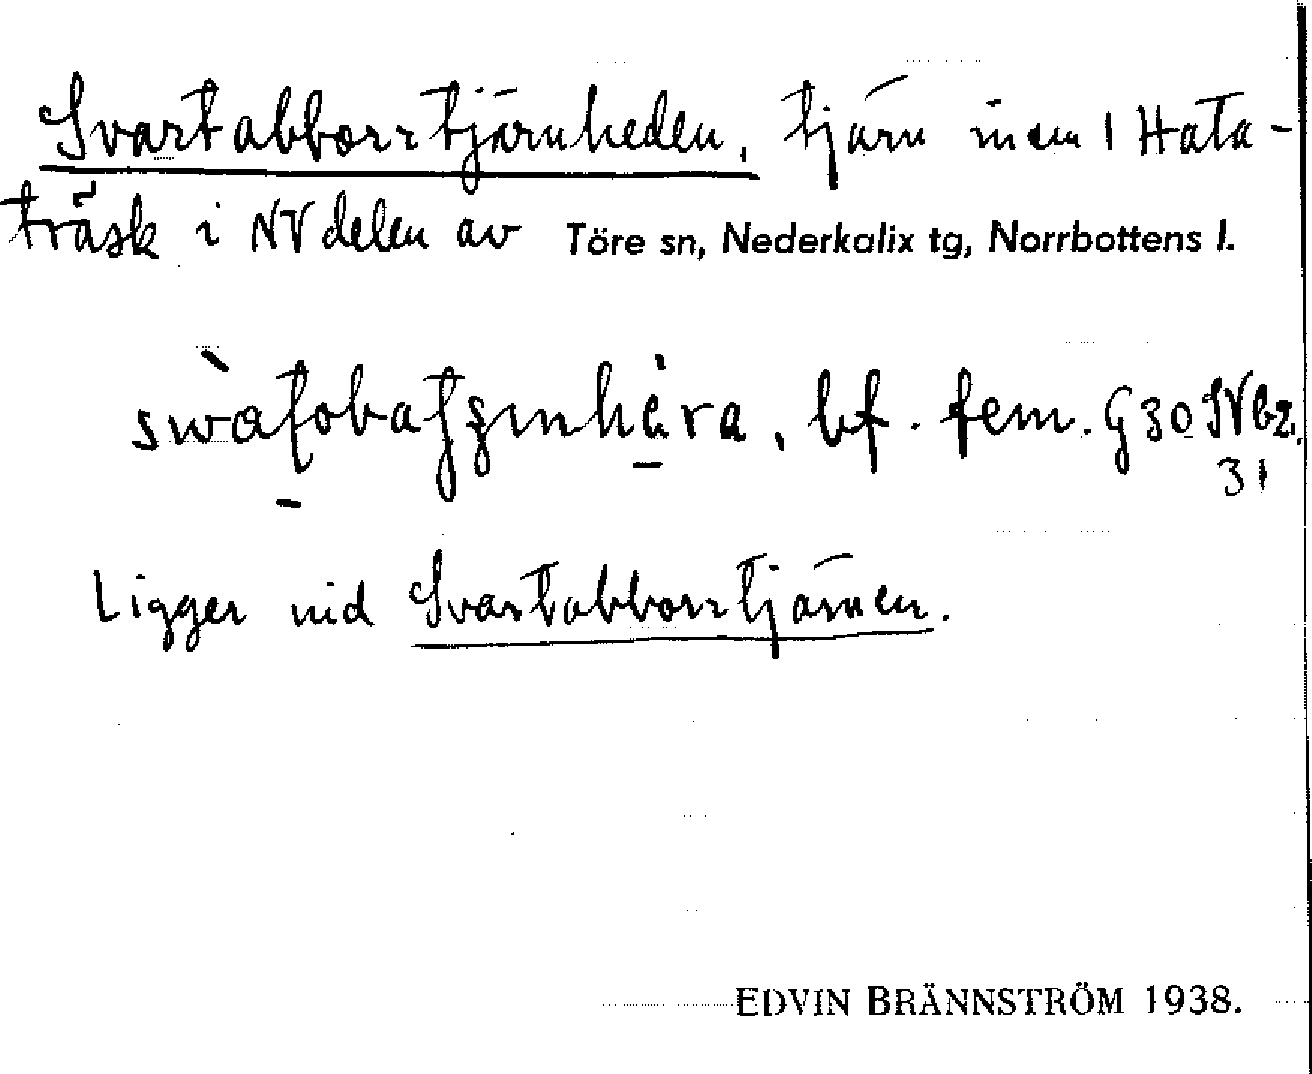 Svartabborrtjärnheden, tjärn inom 1 Hata-
träsk i NV delen av Töre sn, Nederkalix tg, Norrbottens l.
bf. fem. G30 SV b2,
31
Ligger vid Svartabborrtjärnen.
EDVIN BRÄNNSTRÖM 1938.